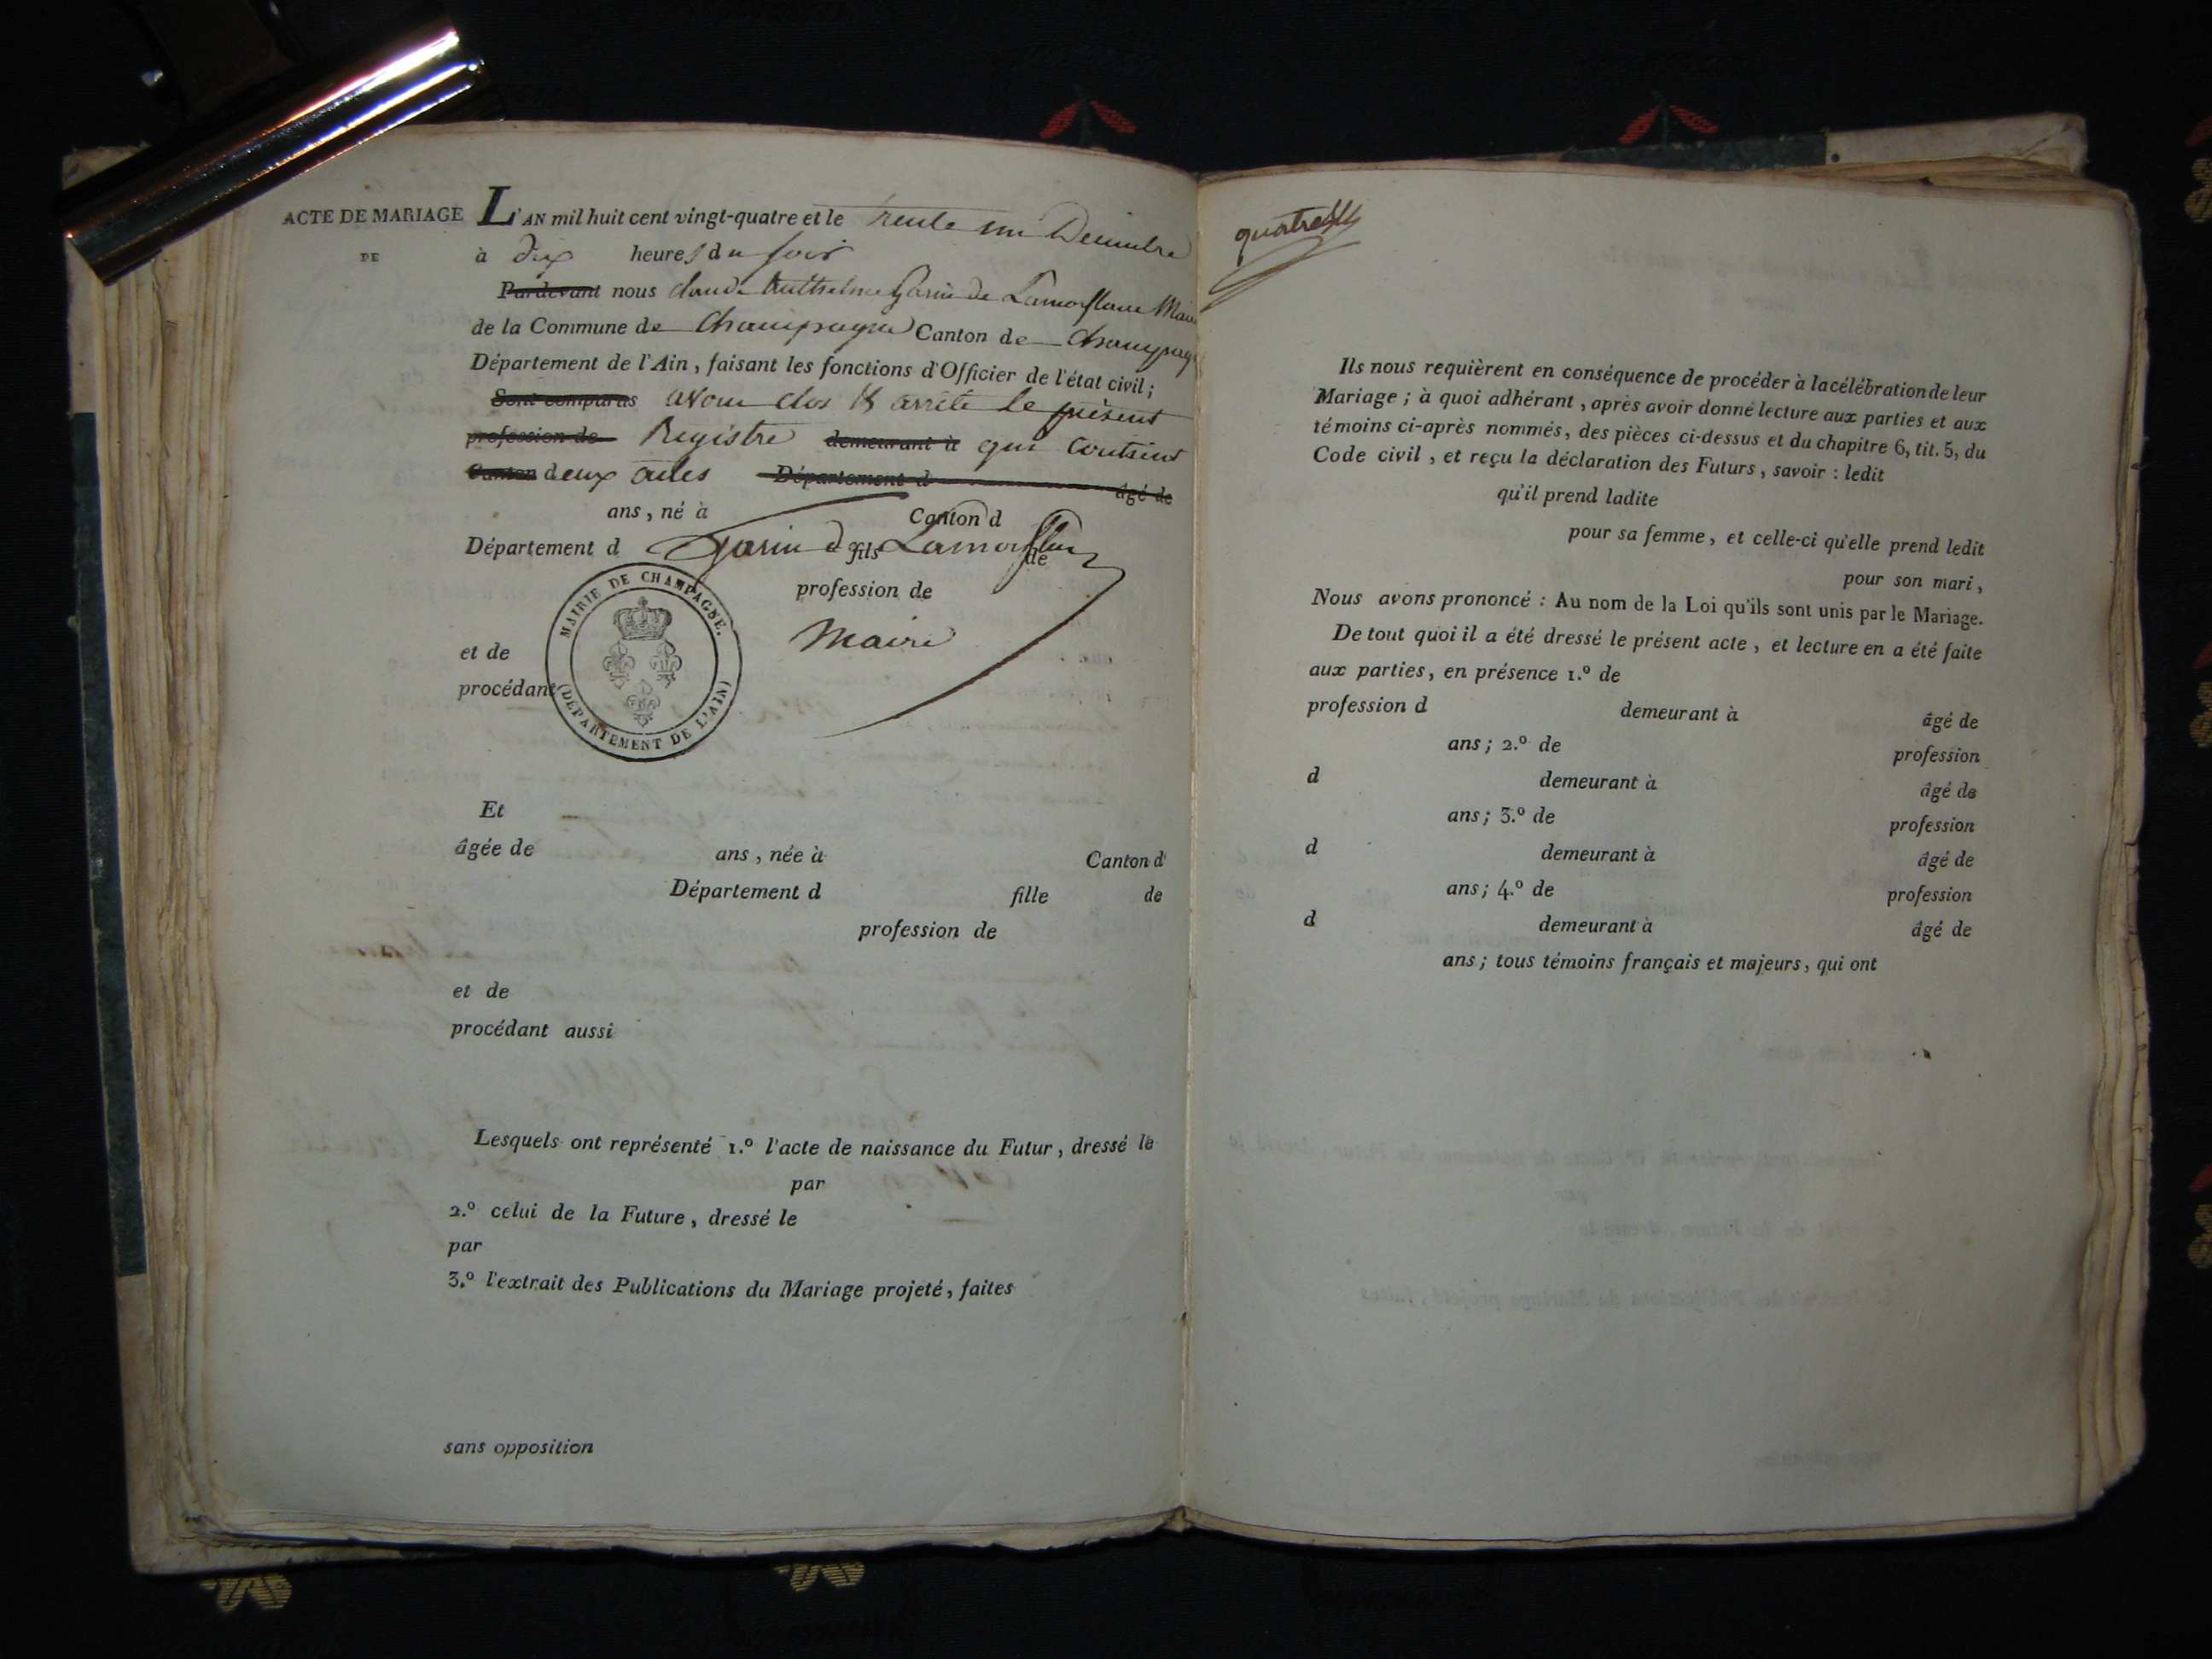 ACTE DE MARIAGE
DE
L'AN mil huit cent vingt-quatre et le trente un Decembre
à dix heures du soir
Pardevant nous claude Anthelme Garin de Lamorflan Maire
de la Commune de Champagne Canton de Champagne
Département de l'Ain, faisant les fonctions d'Officier de l'état civil;
Sont comparus avons clos & arrêté le présent
profession de Registre demeurant à qui contient
Canton deux actes Département d âgé de
ans, né à Canton d
Département d fils de
Garin de Lamorflan
profession de
Maire
MAIRIE DE CHAMPAGNE.
(DÉPARTEMENT DE L'AIN)
et de
procédant
Et
âgée de ans, née à Canton d
Département d fille de
profession de
et de
procédant aussi
Lesquels ont représenté 1.º l'acte de naissance du Futur, dressé le
par
2.º celui de la Future, dressé le
par
3.º l'extrait des Publications du Mariage projeté, faites
sans opposition
quatre
Ils nous requièrent en conséquence de procéder à la célébration de leur
Mariage; à quoi adhérant, après avoir donné lecture aux parties et aux
témoins ci-après nommés, des pièces ci-dessus et du chapitre 6, tit. 5, du
Code civil, et reçu la déclaration des Futurs, savoir: ledit
qu'il prend ladite
pour sa femme, et celle-ci qu'elle prend ledit
pour son mari,
Nous avons prononcé: Au nom de la Loi qu'ils sont unis par le Mariage.
De tout quoi il a été dressé le présent acte, et lecture en a été faite
aux parties, en présence 1.º de
profession d demeurant à âgé de
ans; 2.º de profession
d demeurant à âgé de
ans; 3.º de profession
d demeurant à âgé de
ans; 4.º de profession
d demeurant à âgé de
ans; tous témoins français et majeurs, qui ont